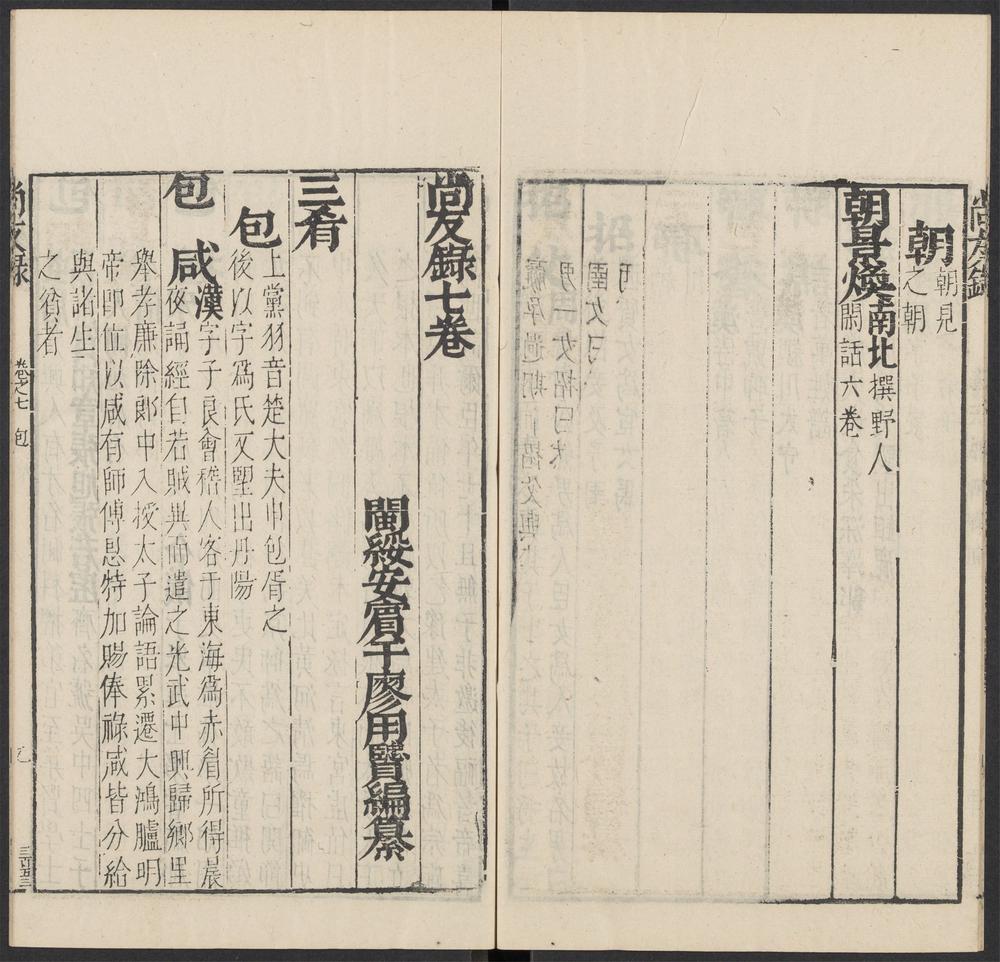 尚友錄
朝
朝見
之朝
朝景煥
南北
撰野人
閑話六卷
尚友錄七卷
閩綏安賓于廖用賢編纂
三肴
包
上黨羽音楚大夫申包胥之
後以字爲氏又望出丹陽
包咸
漢
字子良會稽人客于東海爲赤眉所得晨
夜誦經自若賊異而遣之光武中興歸鄉里
舉孝廉除郎中入授太子論語累遷大鴻臚明
帝即位以咸有師傅恩特加賜俸祿咸皆分給
與諸生
之貧者
尚友錄
卷之七
包